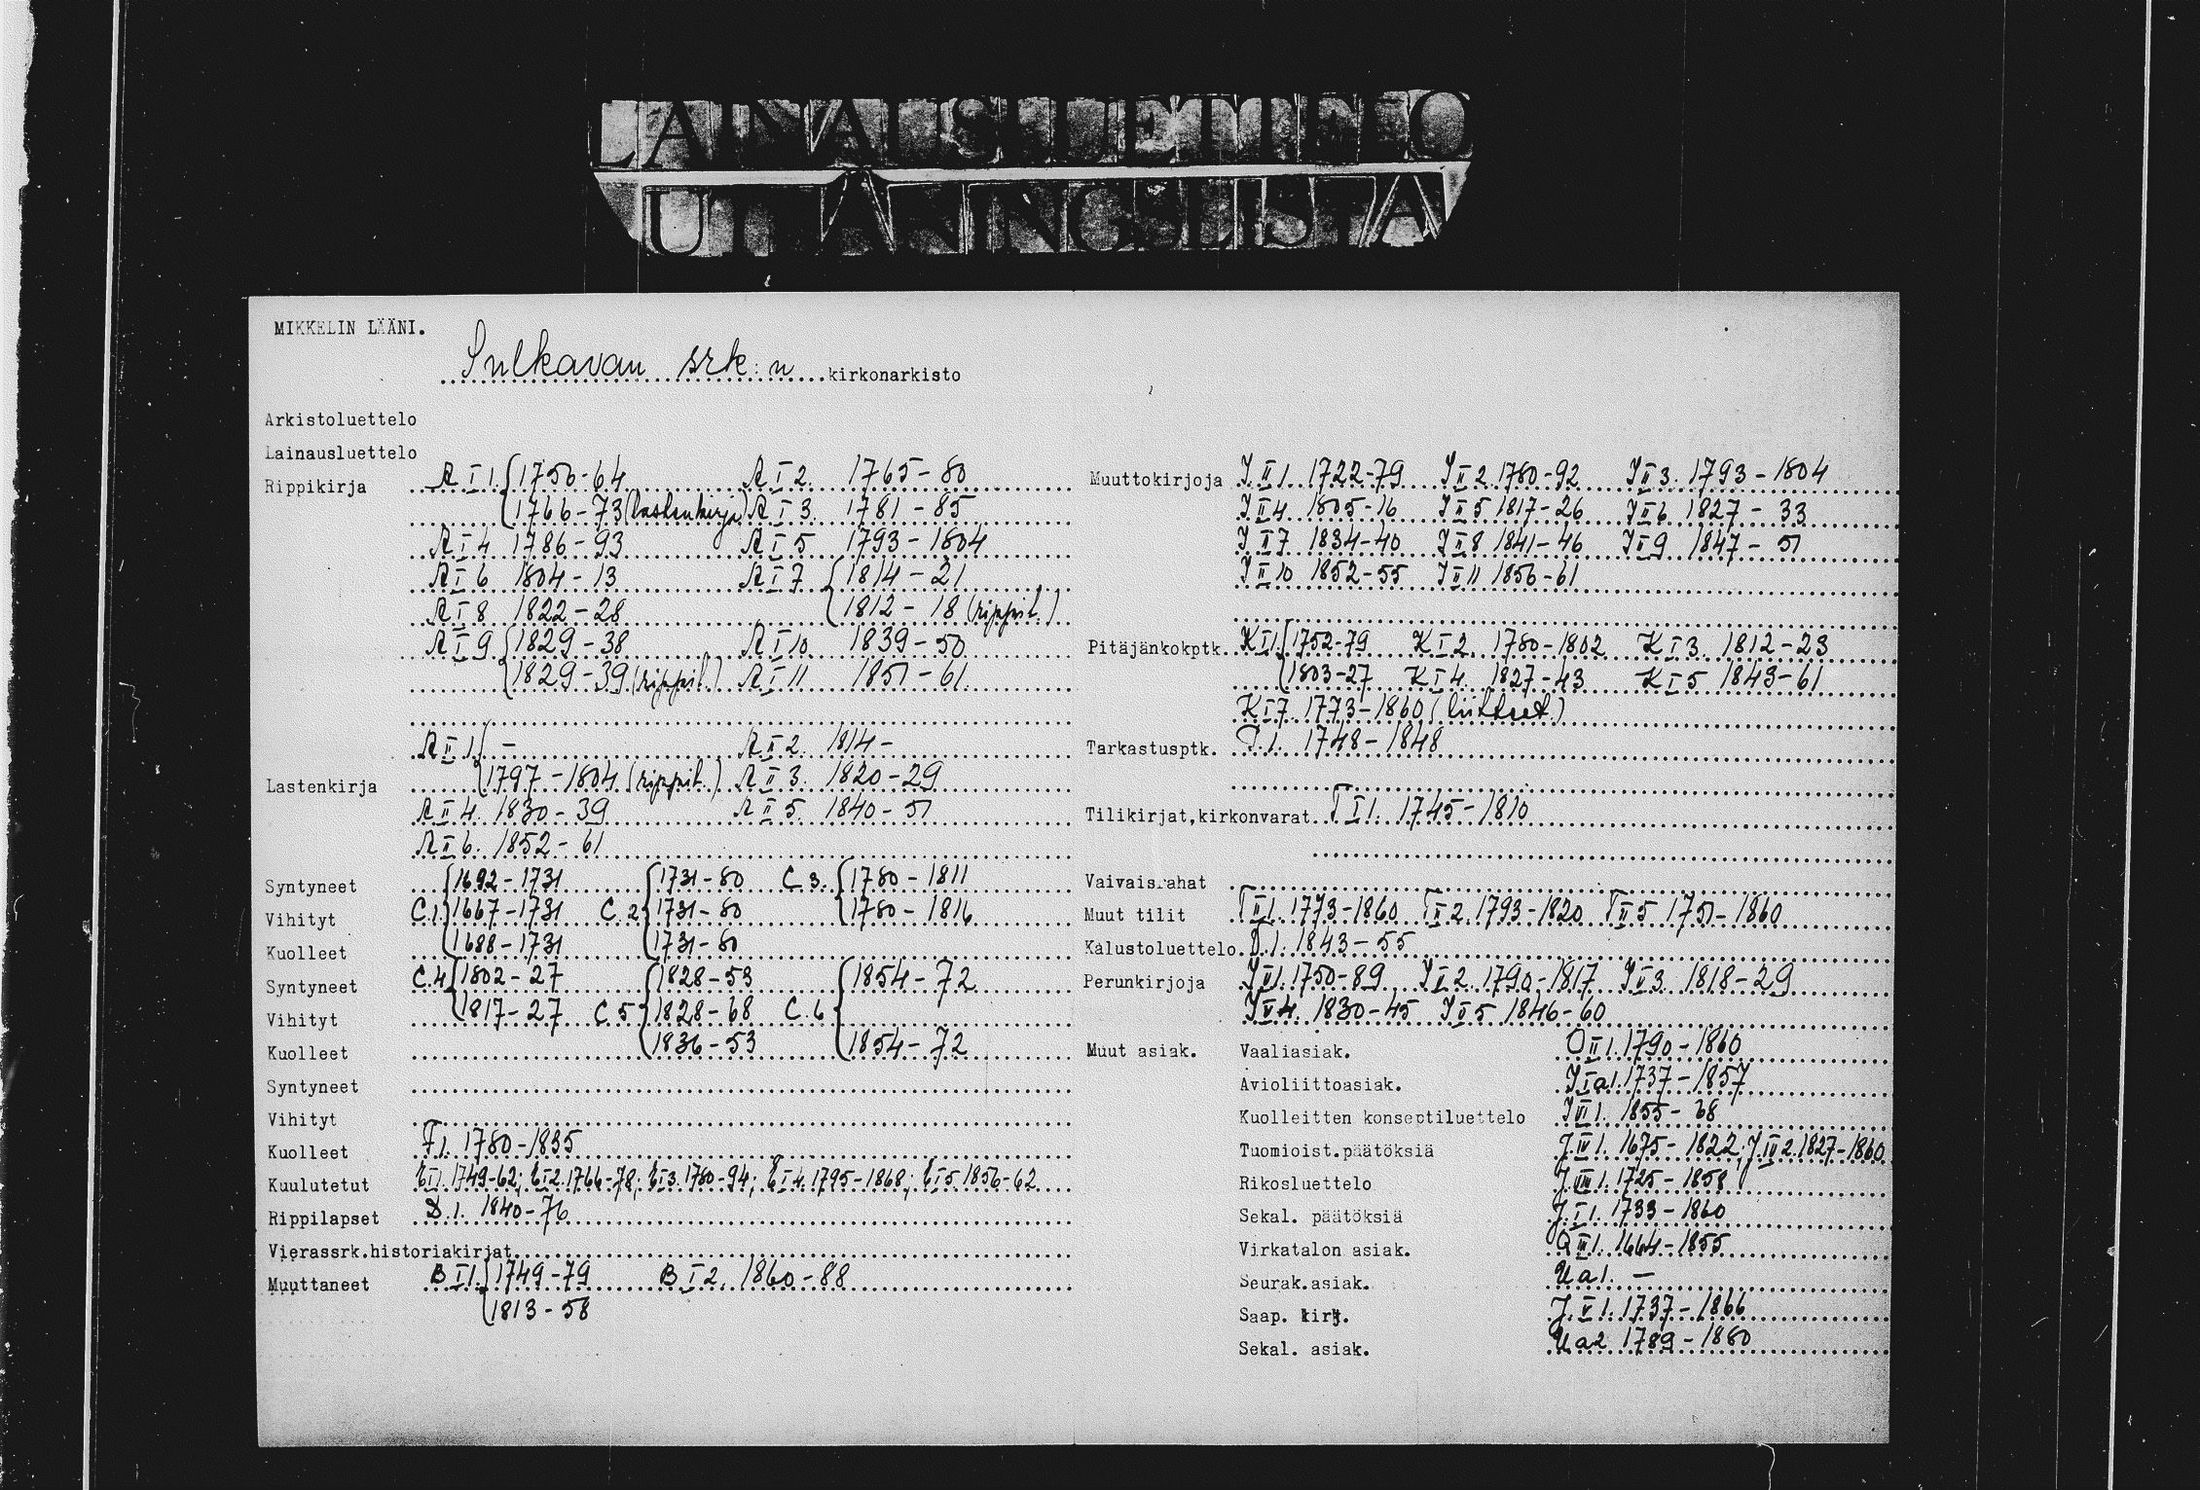 LAINAUSLUETTELO
UTLÅNINGSLISTA
MIKKELIN LÄÄNI.
Sulkavan srk:n kirkonarkisto
Arkistoluettelo
Lainausluettelo
Rippikirja A I 1. 1756-64 A I 2. 1765-80
1766-73 (lastenkirja) A I 3. 1781-85
A I 4 1786-93 A I 5 1793-1804
A I 6 1804-13 A I 7 1814-21
A I 8 1822-28 1812-18 (rippil.)
A I 9 1829-38 A I 10 1839-50
1829-39 (rippil.) A I 11 1851-61
A II 1. - A II 2. 1814-
Lastenkirja 1797-1804 (rippil.) A II 3. 1820-29
A II 4. 1830-39 A II 5. 1840-51
A II 6. 1852-61
Syntyneet 1692-1731 1731-80 C.3. 1780-1811
Vihityt C.1. 1667-1731 C.2 1731-80 1780-1816
Kuolleet 1688-1731 1731-80
Syntyneet C.4 1802-27 1828-53 1854-72
Vihityt 1817-27 C.5 1828-68 C.6
Kuolleet 1836-53 1854-72
Syntyneet
Vihityt
Kuolleet F1. 1780-1835
Kuulutetut E I 1. 1749-62; E I 2. 1766-78; E I 3. 1780-94; E I 4. 1795-1868; E I 5. 1856-62
Rippilapset D.1. 1840-76
Vierassrk.historiakirjat
Muuttaneet B I 1. 1749-79 B I 2. 1860-88
1813-58
Muuttokirjoja J II 1. 1722-79 J II 2. 1780-92 J II 3. 1793-1804
J II 4 1805-16 J II 5 1817-26 J II 6 1827-33
J II 7 1834-40 J II 8 1841-46 J II 9 1847-51
J II 10 1852-55 J II 11 1856-61
Pitäjänkokptk. K I 1. 1752-79 K I 2. 1780-1802 K I 3. 1812-23
1803-27 K I 4. 1827-43 K I 5 1843-61
K I 7. 1773-1860 (liitteet.)
Tarkastusptk. 1748-1848
Tilikirjat,kirkonvarat T I 1. 1745-1810
Vaivaisrahat
Muut tilit T II 1. 1773-1860 T II 2. 1793-1820 T II 5 1751-1860
Kalustoluettelo 1843-55
Perunkirjoja 1750-89 1790-1817 1818-29
1830-45 1846-60
Muut asiak. Vaaliasiak. O II 1. 1790-1860
Avioliittoasiak. 1737-1857
Kuolleitten konseptiluettelo 1855-68
Tuomioist.päätöksiä 1675-1822; 1827-1860
Rikosluettelo J VIII 1. 1725-1858
Sekal. päätöksiä 1733-1860
Virkatalon asiak. 1664-1855
Seurak.asiak. U a 1. -
Saap. kirj. J V 1. 1737-1866
Sekal. asiak. U a 2 1789-1880